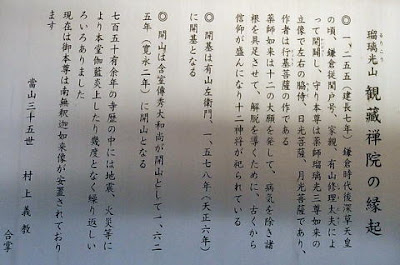 瑠璃光山 観蔵禅院の縁起
るりこう
◎ 一、二五五（建長七年）鎌倉時代後深草天皇
の頃、鎌倉従関戸号、家親、有山修理太夫によ
って開闢し、守り本尊は薬師瑠璃光三尊如来の
立像で左右の脇侍、日光菩薩、月光菩薩であり、
作者は行基菩薩の作である
薬師如来は十二の大願を発して、病気を除き諸
根を具足させて、解脱を導くために、古くから
信仰が盛んになり、十二神将が祀られている
◎ 開基は有山左衛門、一、五七八年（天正六年）
に開基となる
◎ 開山は含室傳秀大和尚が開山として一、六二
五年（寛永二年）に開山となる
七百五十有余年の寺歴の中には地震、火災等に
より本堂伽藍炎上したり幾度となく繰り返しい
ろいろありました
現在は御本尊は南無釈迦如来像が安置されており
ます
當山三十五世 村上義教
合掌